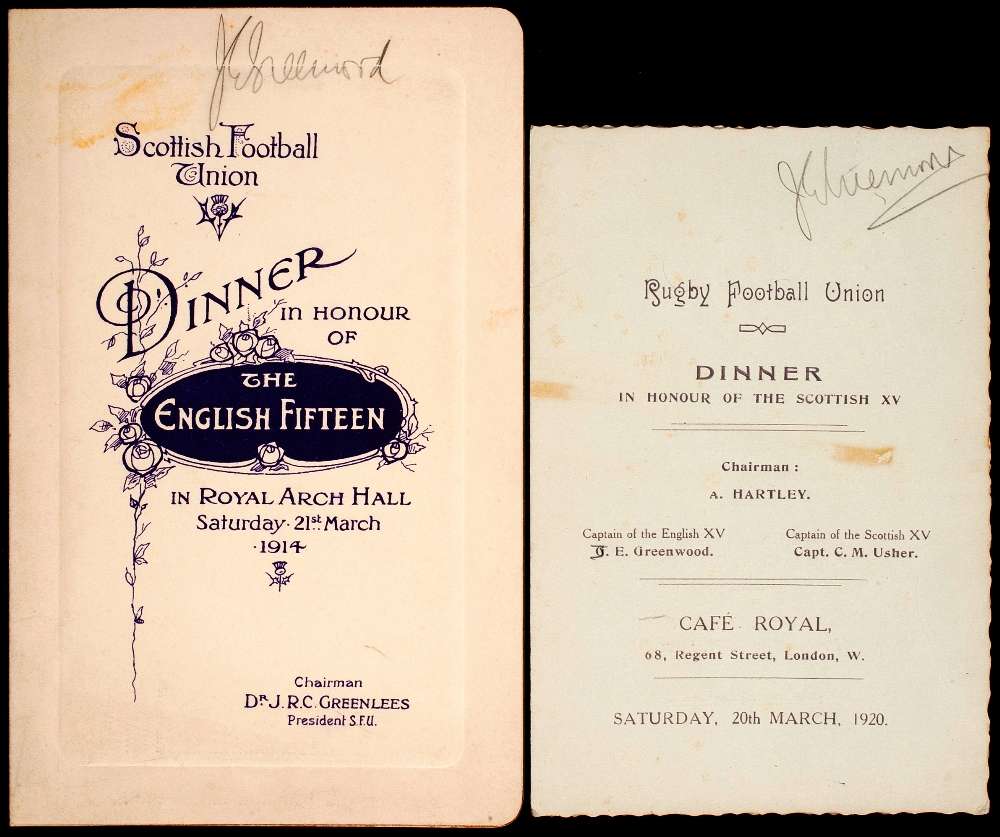 J E Greenwood
Scottish Football
Union
DINNER
IN HONOUR
OF
THE
ENGLISH FIFTEEN
IN ROYAL ARCH HALL
Saturday · 21st March
· 1914 ·
Chairman
DR. J. R. C. GREENLEES
President S.F.U.
J E Greenwood
Rugby Football Union
DINNER
IN HONOUR OF THE SCOTTISH XV
Chairman :
A. HARTLEY.
Captain of the English XV
J. E. Greenwood.
Captain of the Scottish XV
Capt. C. M. Usher.
CAFÉ ROYAL,
68, Regent Street, London, W.
SATURDAY, 20th MARCH, 1920.